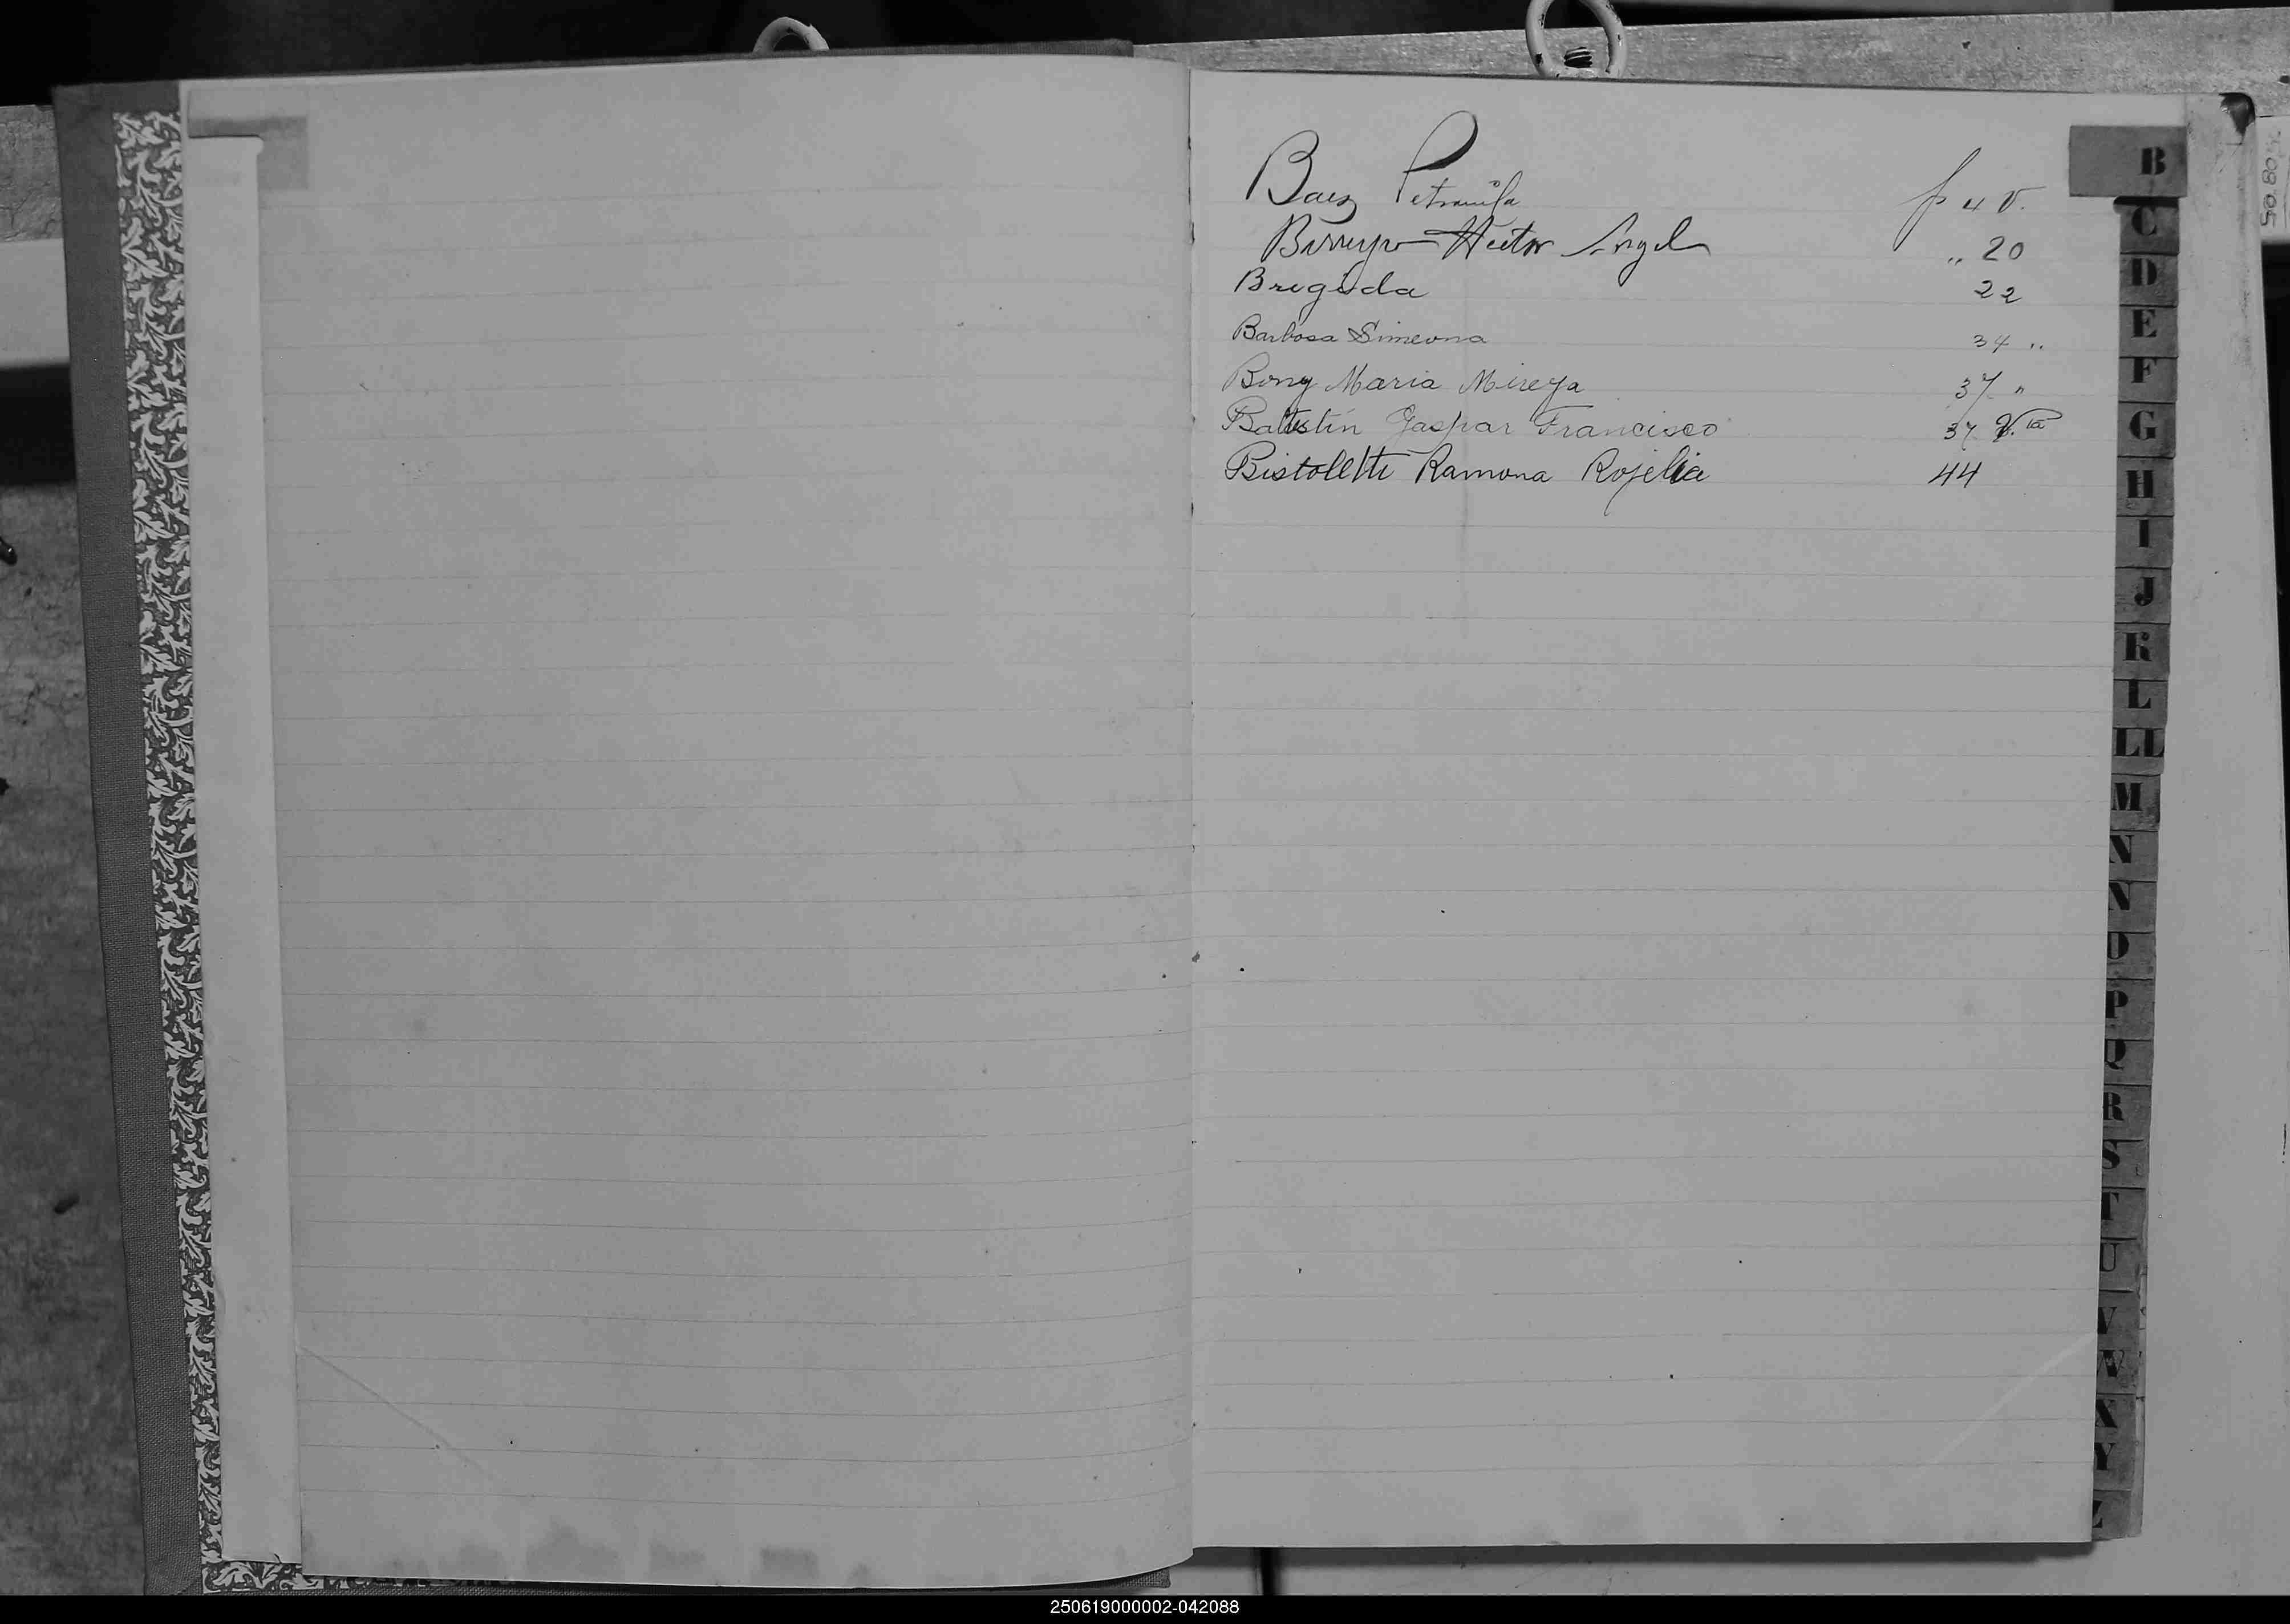 Baez Petronila f 4 v.
Hector Angel " 20
Brigida 22
Barbosa Simeona 34 "
Bony Maria Mireya 37 "
Batistin Gaspar Francisco 37 V.ta
Bistoletti Ramona Rojelia 44
B
C
D
E
F
G
H
I
J
K
L
LL
M
N
N
O
P
Q
R
S
T
U
V
W
X
Y
Z
250619000002-042088